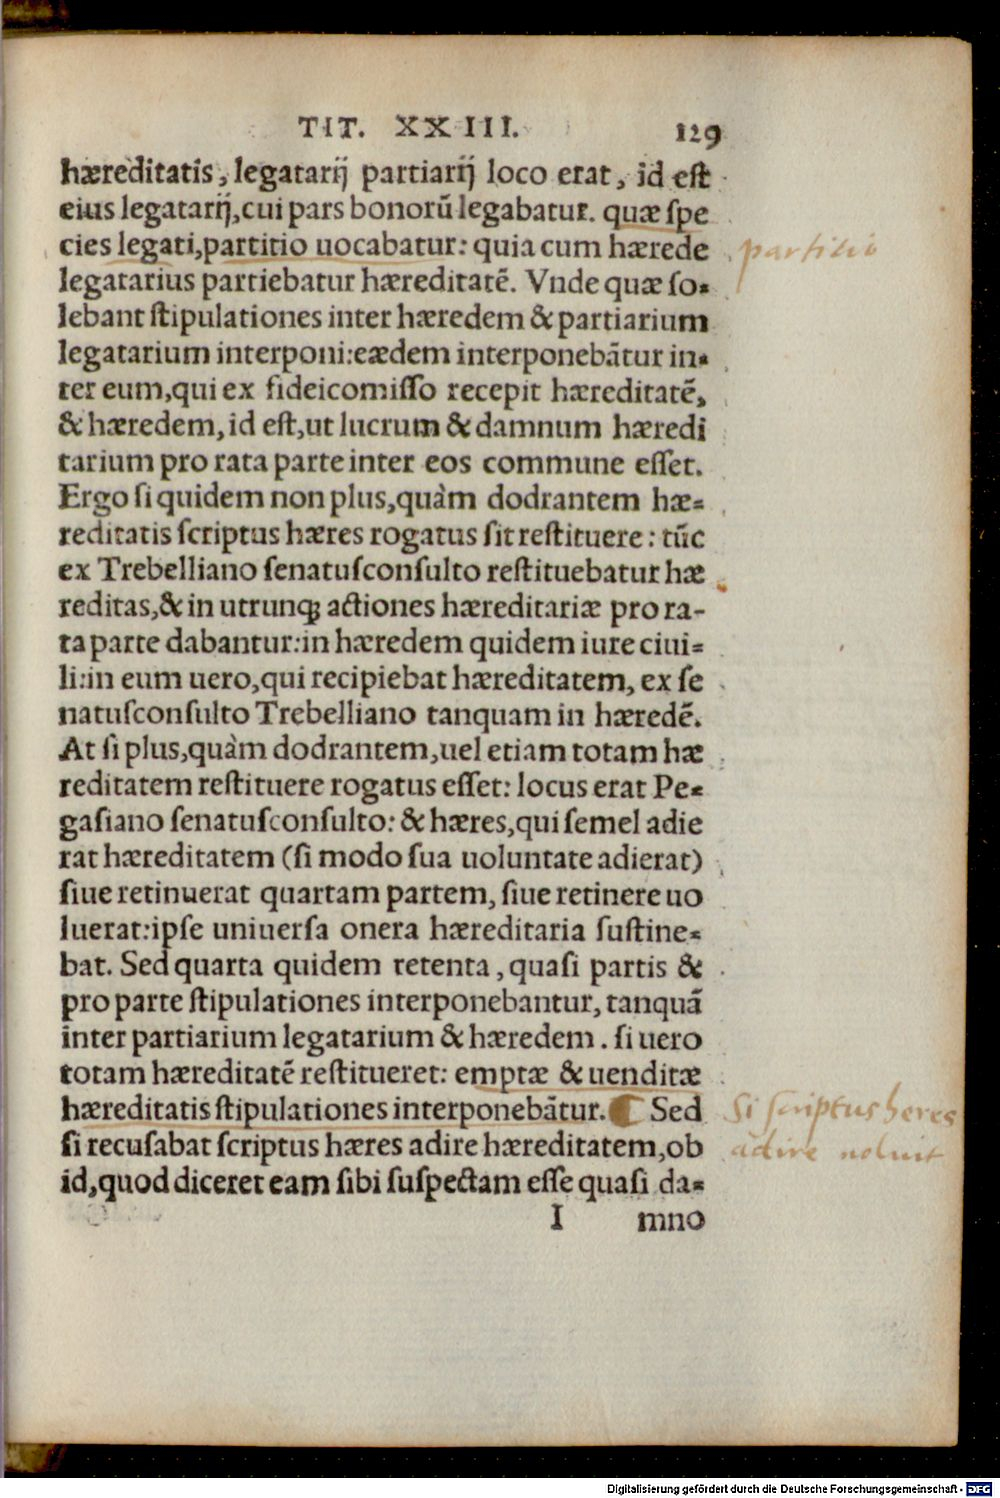 TIT. XXIII. 129
hæreditatis, legatarij partiarij loco erat, id est
eius legatarij, cui pars bonorū legabatur. quæ spe
cies legati, partitio uocabatur: quia cum hærede
partitio
legatarius partiebatur hæreditatē. Vnde quæ so-
lebant stipulationes inter hæredem & partiarium
legatarium interponi: eædem interponebātur in-
ter eum, qui ex fideicomisso recepit hæreditatē,
& hæredem, id est, ut lucrum & damnum hæredi
tarium pro rata parte inter eos commune esset.
Ergo si quidem non plus, quàm dodrantem hæ-
reditatis scriptus hæres rogatus sit restituere: tūc
ex Trebelliano senatusconsulto restituebatur hæ
reditas, & in utrunq; actiones hæreditariæ pro ra-
ta parte dabantur: in hæredem quidem iure ciui-
li: in eum uero, qui recipiebat hæreditatem, ex se
natusconsulto Trebelliano tanquam in hæredē.
At si plus, quàm dodrantem, uel etiam totam hæ
reditatem restituere rogatus esset: locus erat Pe-
gasiano senatusconsulto: & hæres, qui semel adie
rat hæreditatem (si modo sua uoluntate adierat)
siue retinuerat quartam partem, siue retinere uo
luerat: ipse uniuersa onera hæreditaria sustine-
bat. Sed quarta quidem retenta, quasi partis &
pro parte stipulationes interponebantur, tanquā
inter partiarium legatarium & hæredem. si uero
totam hæreditatē restitueret: emptæ & uenditæ
hæreditatis stipulationes interponebātur. Sed
Si scriptus heres
si recusabat scriptus hæres adire hæreditatem, ob
adire noluit
id, quod diceret eam sibi suspectam esse quasi da-
I mno
Digitalisierung gefördert durch die Deutsche Forschungsgemeinschaft - DFG